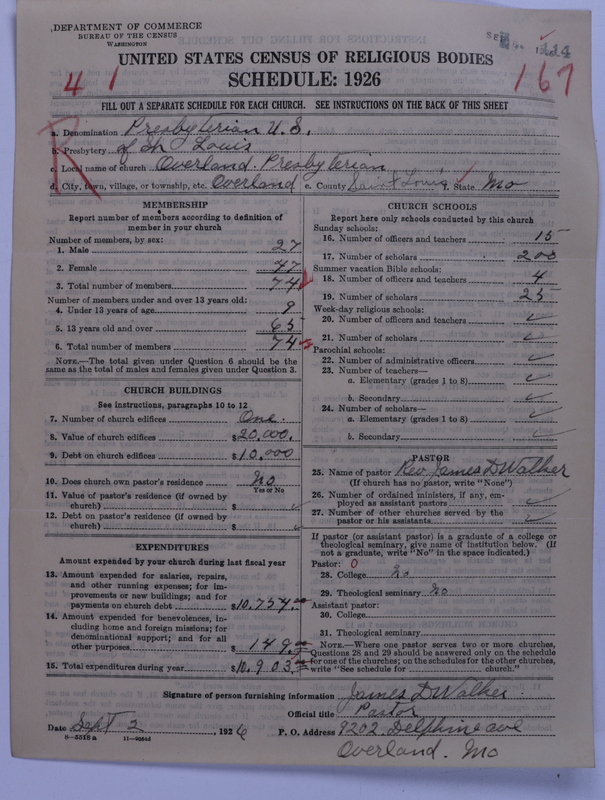 DEPARTMENT OF COMMERCE
BUREAU OF THE CENSUS
WASHINGTON
UNITED STATES CENSUS OF RELIGIOUS BODIES
SCHEDULE: 1926
4 1
167
FILL OUT A SEPARATE SCHEDULE FOR EACH CHURCH. SEE INSTRUCTIONS ON THE BACK OF THIS SHEET
R
a. Denomination Presbyterian U.S.
b. Presbytery of St Louis
c. Local name of church Overland Presbyterian
d. City, town, village, or township, etc. Overland e. County Saint Louis State Mo
MEMBERSHIP
Report number of members according to definition of
member in your church
Number of members, by sex:
1. Male 27
2. Female 47
3. Total number of members 74
Number of members under and over 13 years old:
4. Under 13 years of age 9
5. 13 years old and over 65
6. Total number of members 74
NOTE.—The total given under Question 6 should be the
same as the total of males and females given under Question 3.
CHURCH BUILDINGS
See instructions, paragraphs 10 to 12
7. Number of church edifices One.
8. Value of church edifices $20,000.
9. Debt on church edifices $10,000
10. Does church own pastor's residence? No
Yes or No
11. Value of pastor's residence (if owned by
church) $
12. Debt on pastor's residence (if owned by
church) $ ✓
EXPENDITURES
Amount expended by your church during last fiscal year
13. Amount expended for salaries, repairs,
and other running expenses; for im-
provements or new buildings; and for
payments on church debt $10,754.00
14. Amount expended for benevolences, in-
cluding home and foreign missions; for
denominational support; and for all
other purposes 149.00
15. Total expenditures during year $10,903.00
CHURCH SCHOOLS
Report here only schools conducted by this church
Sunday schools:
16. Number of officers and teachers 15
17. Number of scholars 200
Summer vacation Bible schools:
18. Number of officers and teachers 4
19. Number of scholars 25
Week-day religious schools:
20. Number of officers and teachers ✓
21. Number of scholars ✓
Parochial schools:
22. Number of administrative officers ✓
23. Number of teachers—
a. Elementary (grades 1 to 8) ✓
b. Secondary ✓
24. Number of scholars—
a. Elementary (grades 1 to 8) ✓
b. Secondary ✓
PASTOR
25. Name of pastor Rev James D Walker
(If church has no pastor, write "None")
26. Number of ordained ministers, if any, em-
ployed as assistant pastors ✓
27. Number of other churches served by the
pastor or his assistants ✓
If pastor (or assistant pastor) is a graduate of a college or
theological seminary, give name of institution below. (If
not a graduate, write "No" in the space indicated.)
Pastor: 0
28. College No
29. Theological seminary No
Assistant pastor:
30. College
31. Theological seminary
NOTE.—Where one pastor serves two or more churches,
Questions 28 and 29 should be answered only on the schedule
for one of the churches; on the schedules for the other churches,
write "See schedule for church."
Signature of person furnishing information James D Walker
Official title Pastor
Date Sept 2, 1926 P. O. Address 9202 Delphine ave
8—5518 a
Overland. Mo